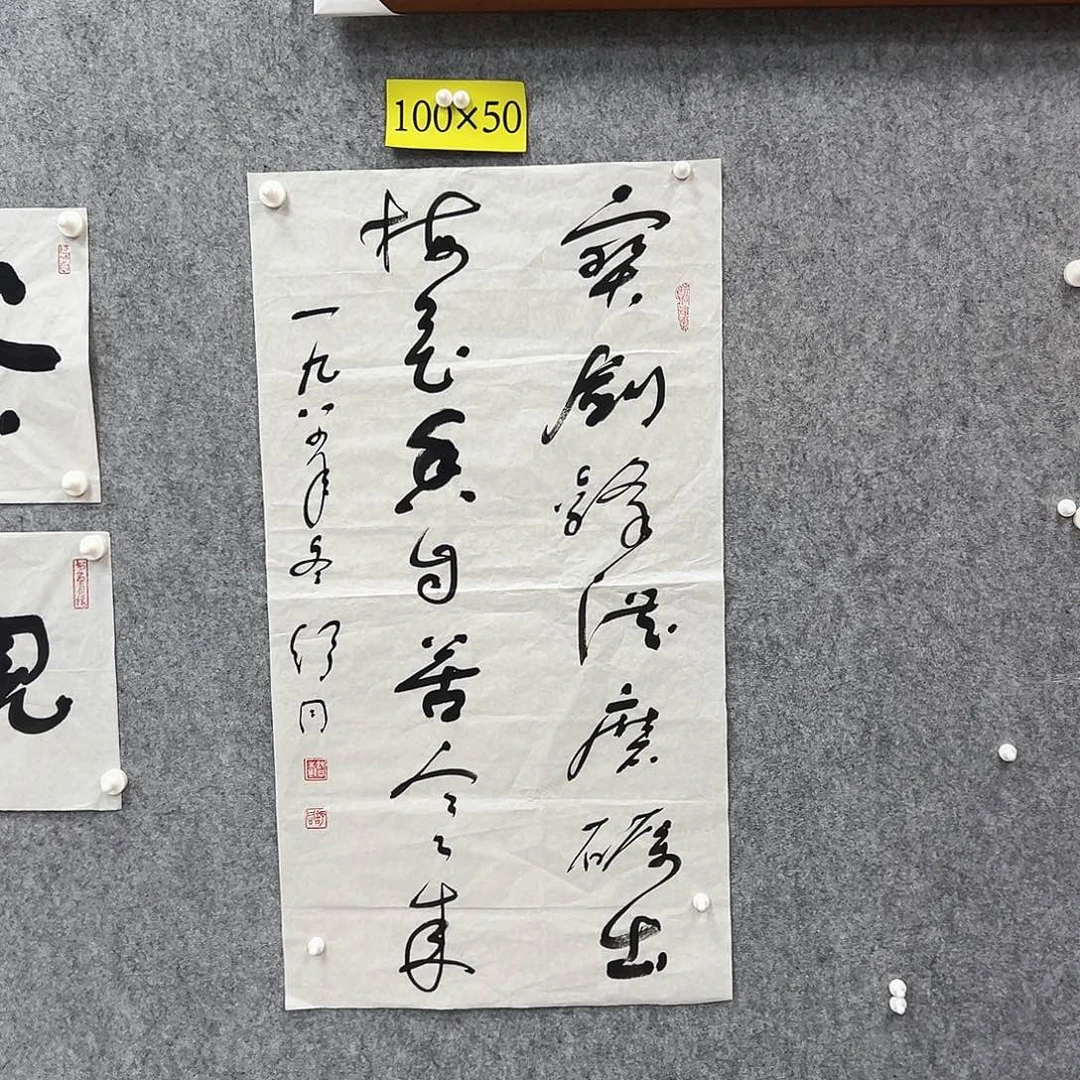 100×50
寶劍鋒從磨礪出
梅花香自苦寒来
一九八四年冬 舒同